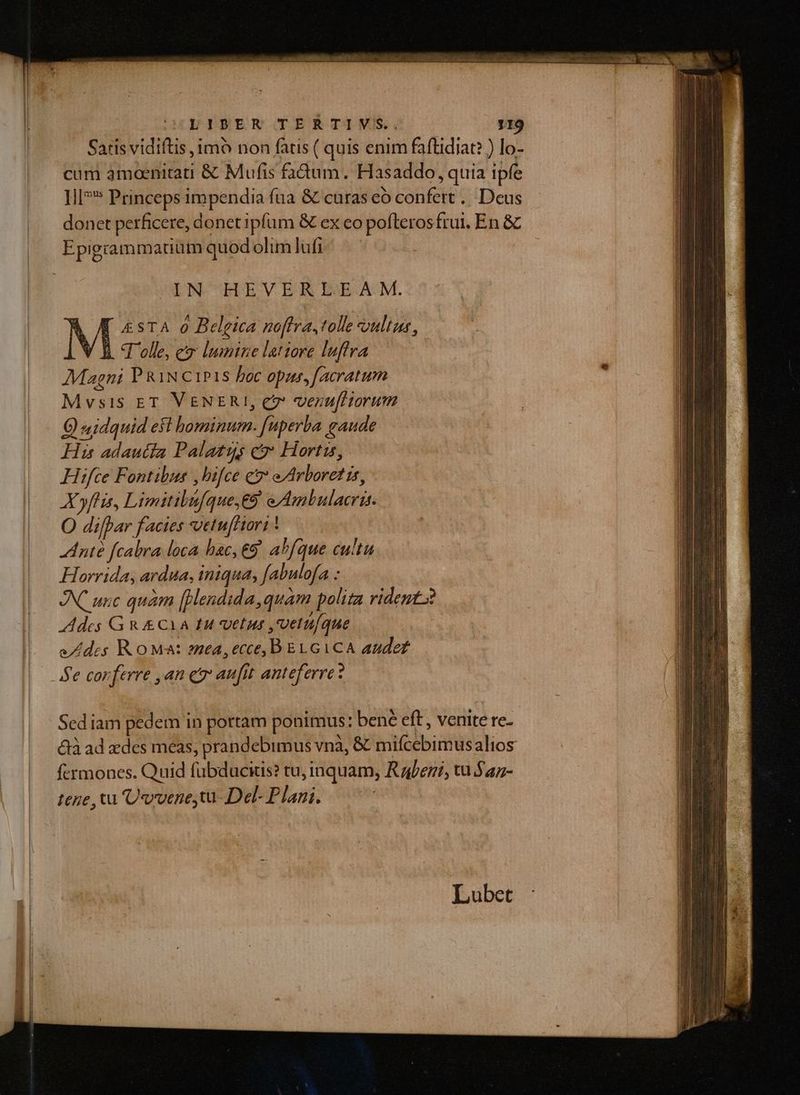 LIBER TERTIVS. 119
Satis vidiſtis, imò non ſatis (quis enim faſtidiat?) lo-
cum amœnitati & Muſis factum. Hasaddo, quia ipſe
Ill<sup>mus</sup> Princeps impendia ſua & curas eò confert. Deus
donet perficere, donet ipſum & ex eo poſteros frui. En &
Epigrammatium quod olim luſi
IN HEVERLEAM.
MÆSTA ô Belgica noſtra, tolle vultus,
Tolle, & lumine latiore luſtra
Magni PRINCIPIS hoc opus, ſacratum
MVSIS ET VENERI, & venuſtiorum
Quidquid est hominum. ſuperba gaude
His adaucta Palatijs & Hortis,
Hiſce Fontibus, hiſce & Arboretis,
Xyſtis, Limitibuſque, & Ambulacris.
O diſpar facies vetuſtiori!
Antè ſcabra loca hæc, & abſque cultu
Horrida, ardua, iniqua, fabuloſa:
Nunc quàm ſplendida, quàm polita rident?
Ades GRÆCIA tu vetus, vetúſque
Ades ROMA: mea, ecce, BELGICA audet
Se conferre, an & auſit anteferre?
Sed iam pedem in portam ponimus: benè eſt, venite re-
ctà ad ædes meas, prandebimus vnà, & miſcebimus alios
ſermones. Quid ſubducitis? tu, inquam, Rubeni, tu San-
tene, tu Uvvene, tu Del-Plani.
Lubet